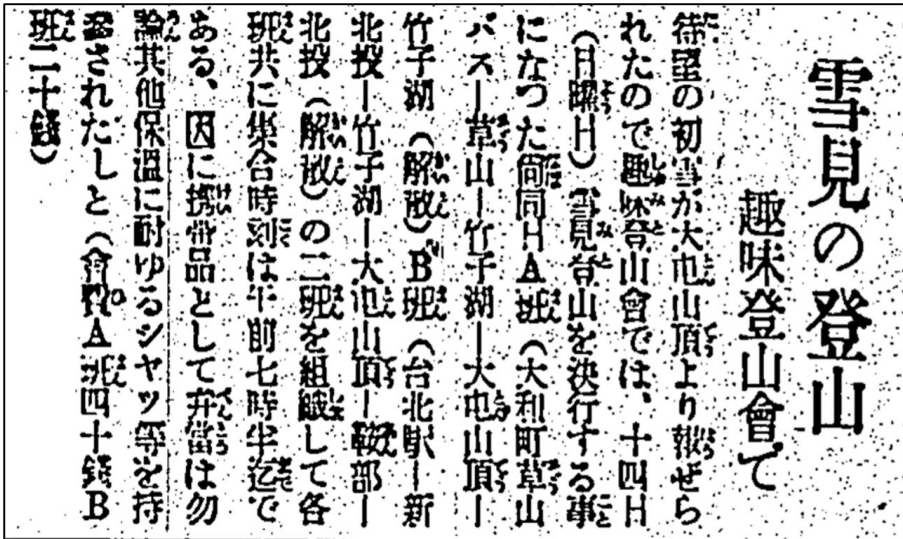 雪見の登山
趣味登山會で
待望の初雪が大屯山頂より報ぜら
れたので趣味登山會では、十四日
(日曜日)雪見登山を決行する事
になつた尚同日A班(大和町草山
バス—草山—竹子湖—大屯山頂—
竹子湖(解散)B班(台北駅—新
北投—竹子湖—大屯山頂—鞍部—
北投(解散)の二班を組織して各
班共に集合時刻は午前七時半迄で
ある、因に携帶品として弁當は勿
論其他保溫に耐ゆるシヤツ等を持
參されたしと(會費A班四十錢B
班二十錢)